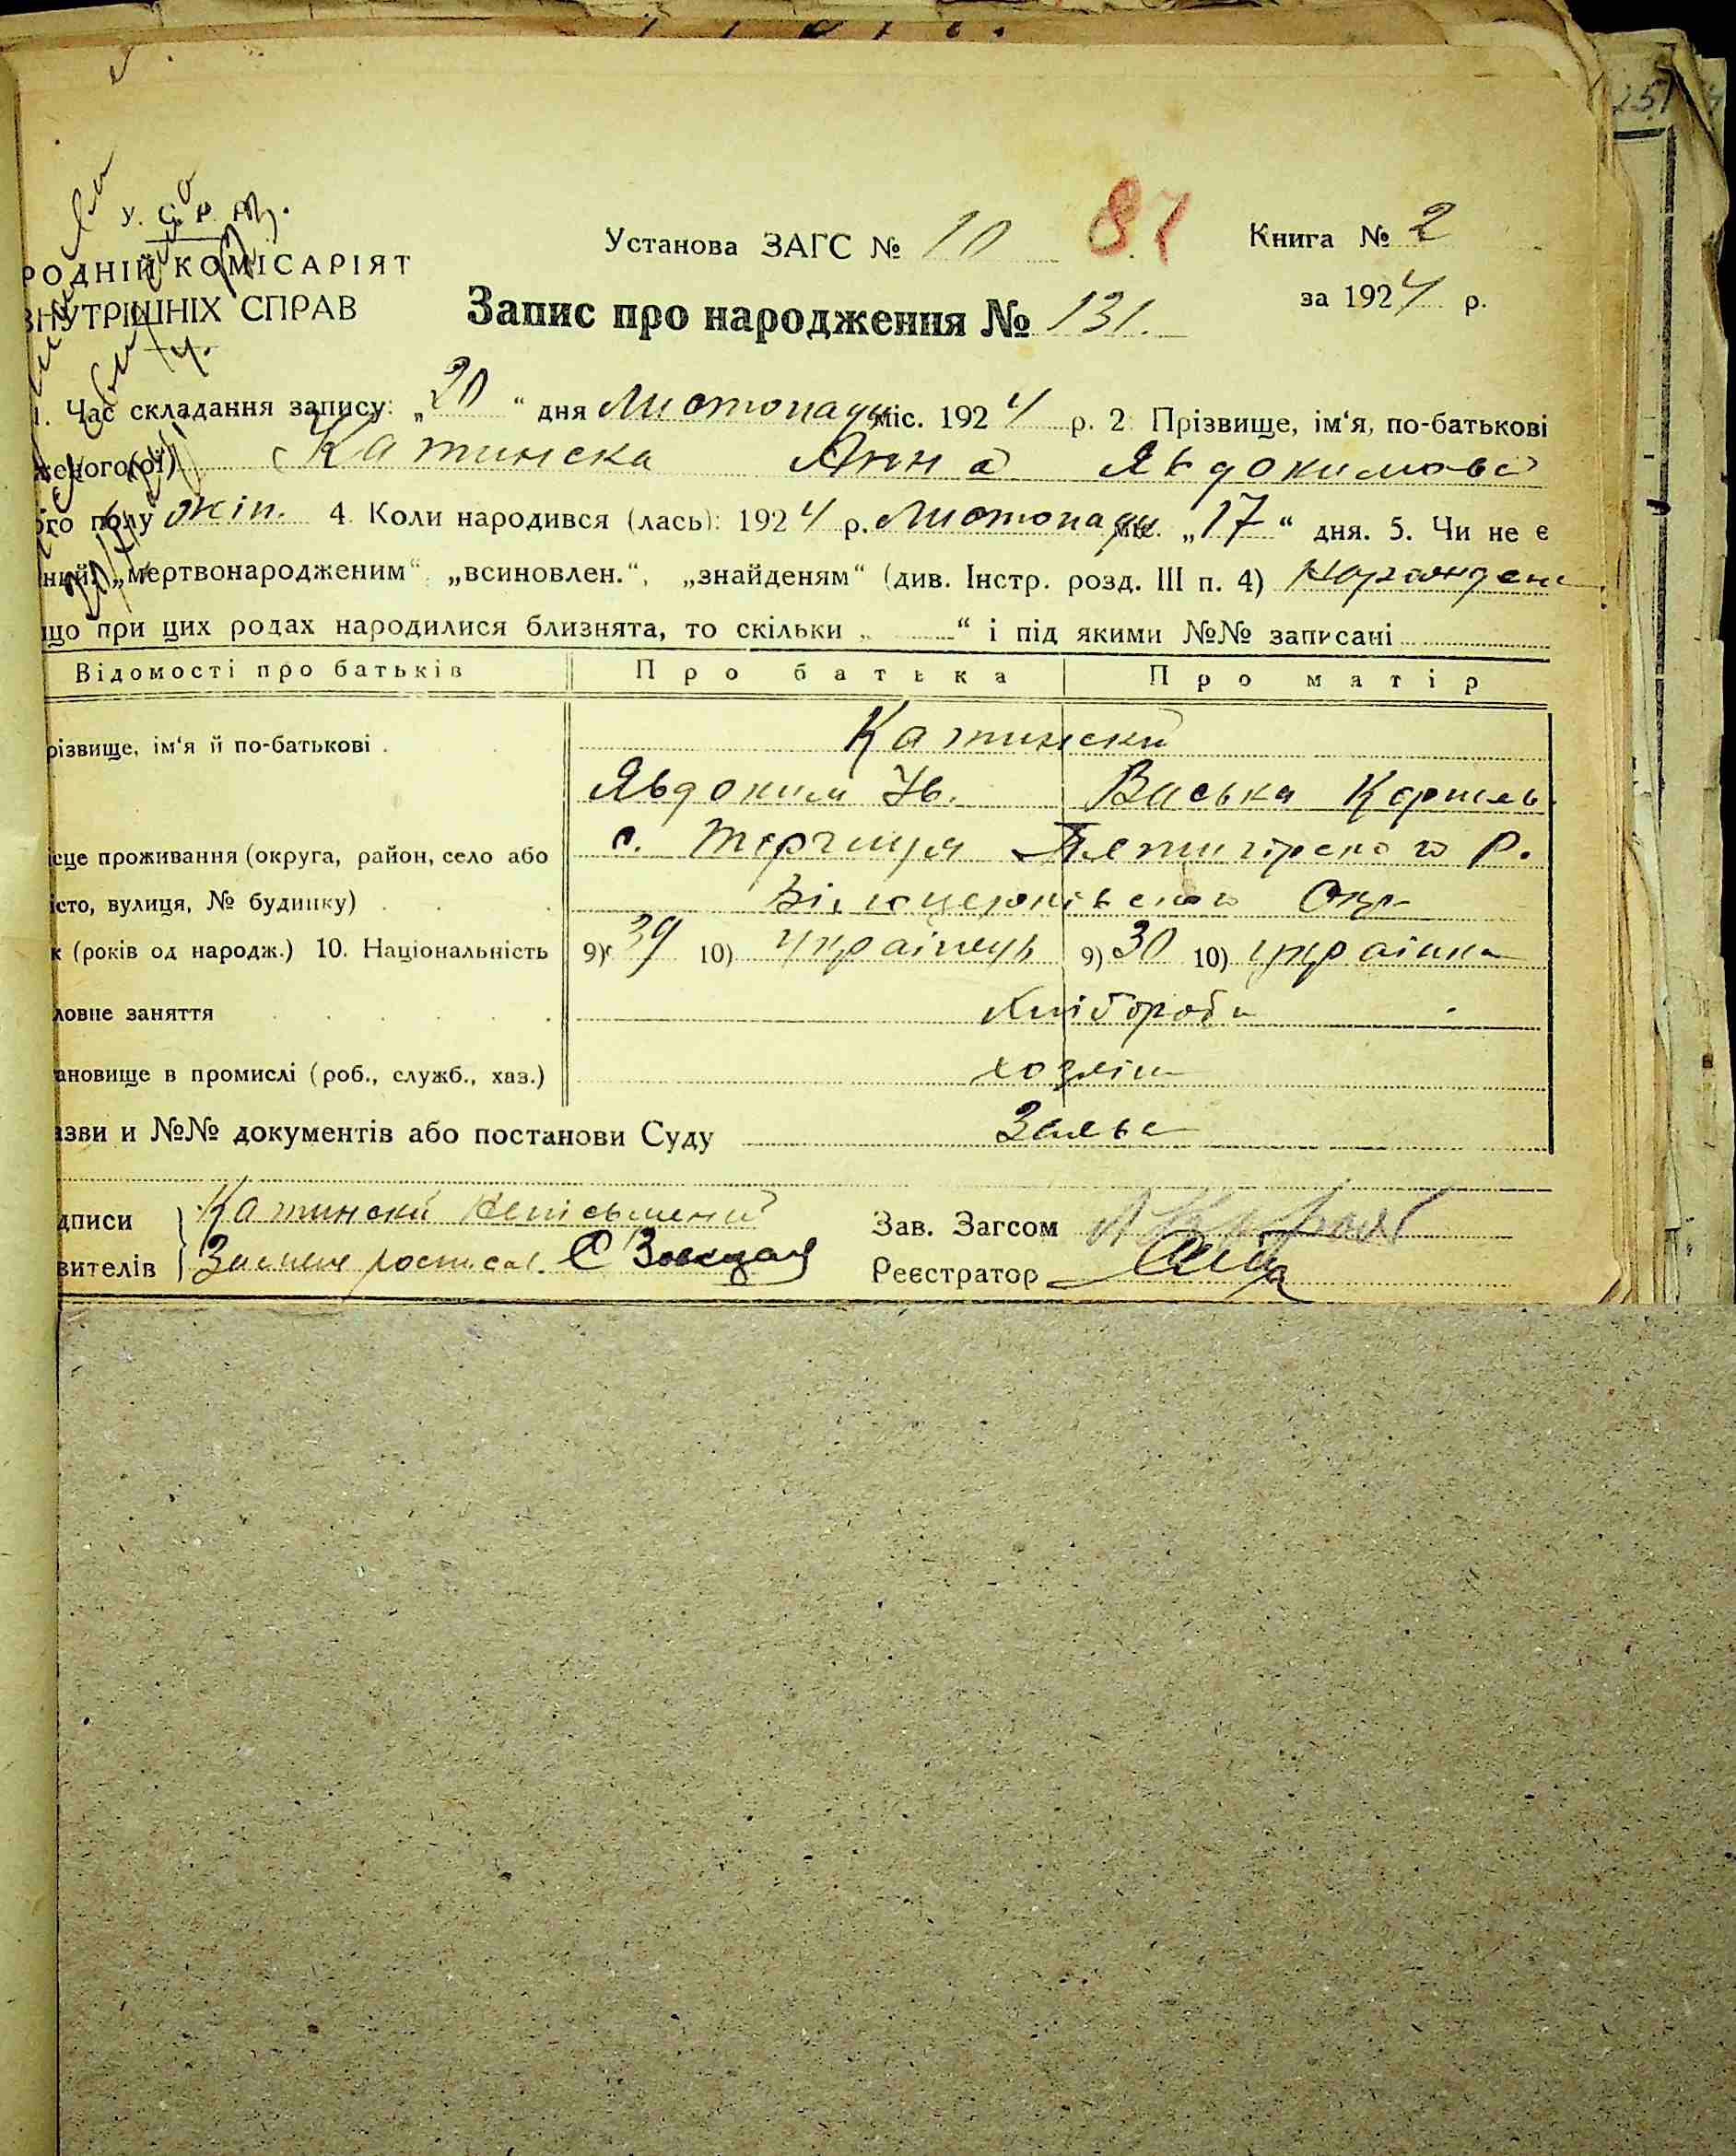 У. С. Р. Р.
РОДНІЙ КОМІСАРІЯТ
ВНУТРІШНІХ СПРАВ
Установа ЗАГС № 10 87 Книга № 2
Запис про народження № 131. за 1924 р.
1. Час складання запису: „20“ дня Листопаду міс. 1924 р. 2. Прізвище, ім‘я, по-батькові
женого(ої) Катинска Анна Явдокимова
ого полу жін. 4. Коли народився (лась): 1924 р. Листопаду міс. „17“ дня. 5. Чи не є
ний: „мертвонародженим“, „всиновлен.“, „знайденям“ (див. Інстр. розд. III п. 4)
що при цих родах народилися близнята, то скільки „ “ і під якими №№ записані
Відомості про батьків Про батька Про матір
різвище, ім‘я й по-батькові Катински
Явдоким Ів. Васька Корніев.
ісце проживання (округа, район, село або с. Терчиця Пятигірского Р.
істо, вулиця, № будинку) Білоцерківского Окр
к (років од народж.) 10. Національність 9) 39 10) українець 9) 30 10) українка
ловне заняття Хліборобы
ановище в промислі (роб., служб., хаз.) хозяін
азви и №№ документів або постанови Суду Заява
дписи Катинский Зав. Загсом
вителів росписал. Реєстратор